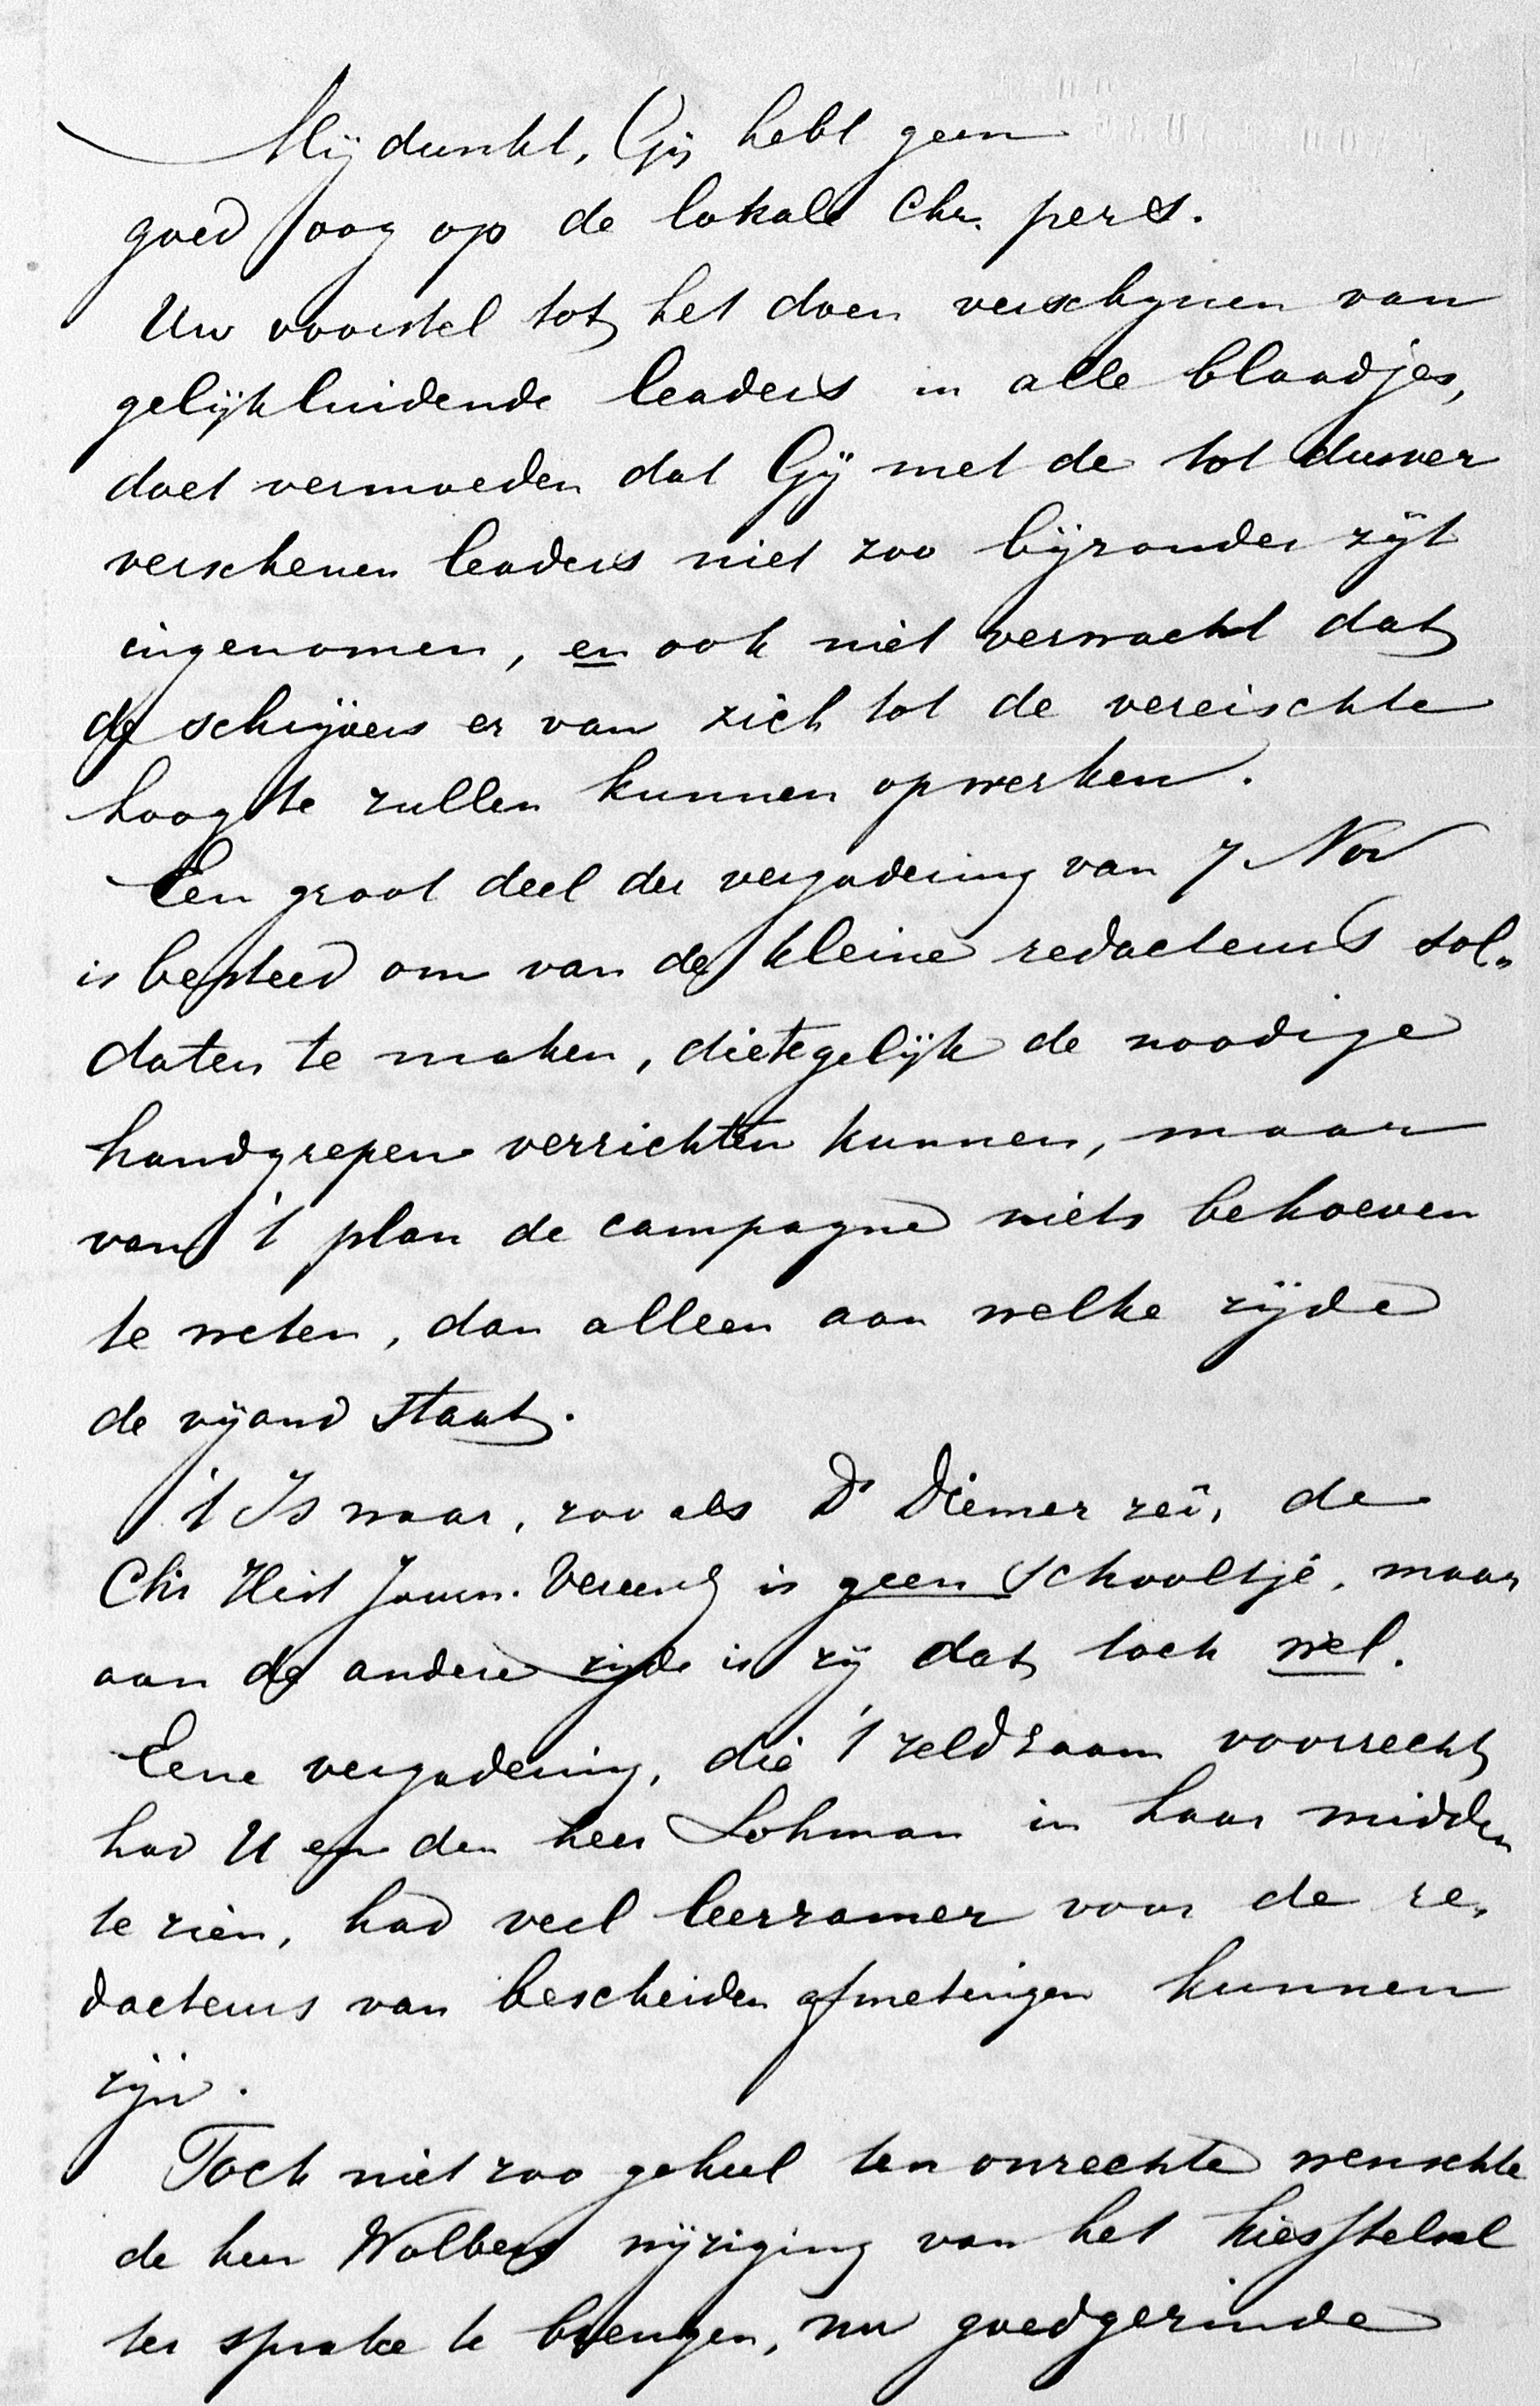 Mij dunkt, Gij hebt geen
goed oog op de lokale Chr. pers.
Uw voorstel tot het doen verschijnen van
gelijkluidende leaders in alle blaadjes,
doet vermoeden dat Gij met de tot dusver
verschenen leaders niet zoo bijzonder zijt
ingenomen, en ook niet verwacht dat
de schrijvers er van zich tot de vereischte
hoogte zullen kunnen opwerken.
Een groot deel der vergadering van 7 Nov
is besteed om van de kleine redacteurs sol-
daten te maken, die tegelijk de noodige
handgrepen verrichten kunnen, maar
van 't plan de campagne niets behoeven
te weten, dan alleen aan welke zijde
de vijand staat.
't Is waar, zoo als Dr Diemer zei, de
Chr Hist Journ. Vereenig is geen schooltje, maar
aan de andere zijde is zij dat toch wel.
Eene vergadering, die 't zeldzaam voorrecht
had U en den heer Lohman in haar midden
te zien, had veel leerzamer voor de re-
dacteurs van bescheiden afmetingen kunnen
zijn.
Toch niet zoo geheel ten onrechte wenschte
de heer Wolbers wijziging van het kiesstelsel
ter sprake te brengen, nu goedgezinde